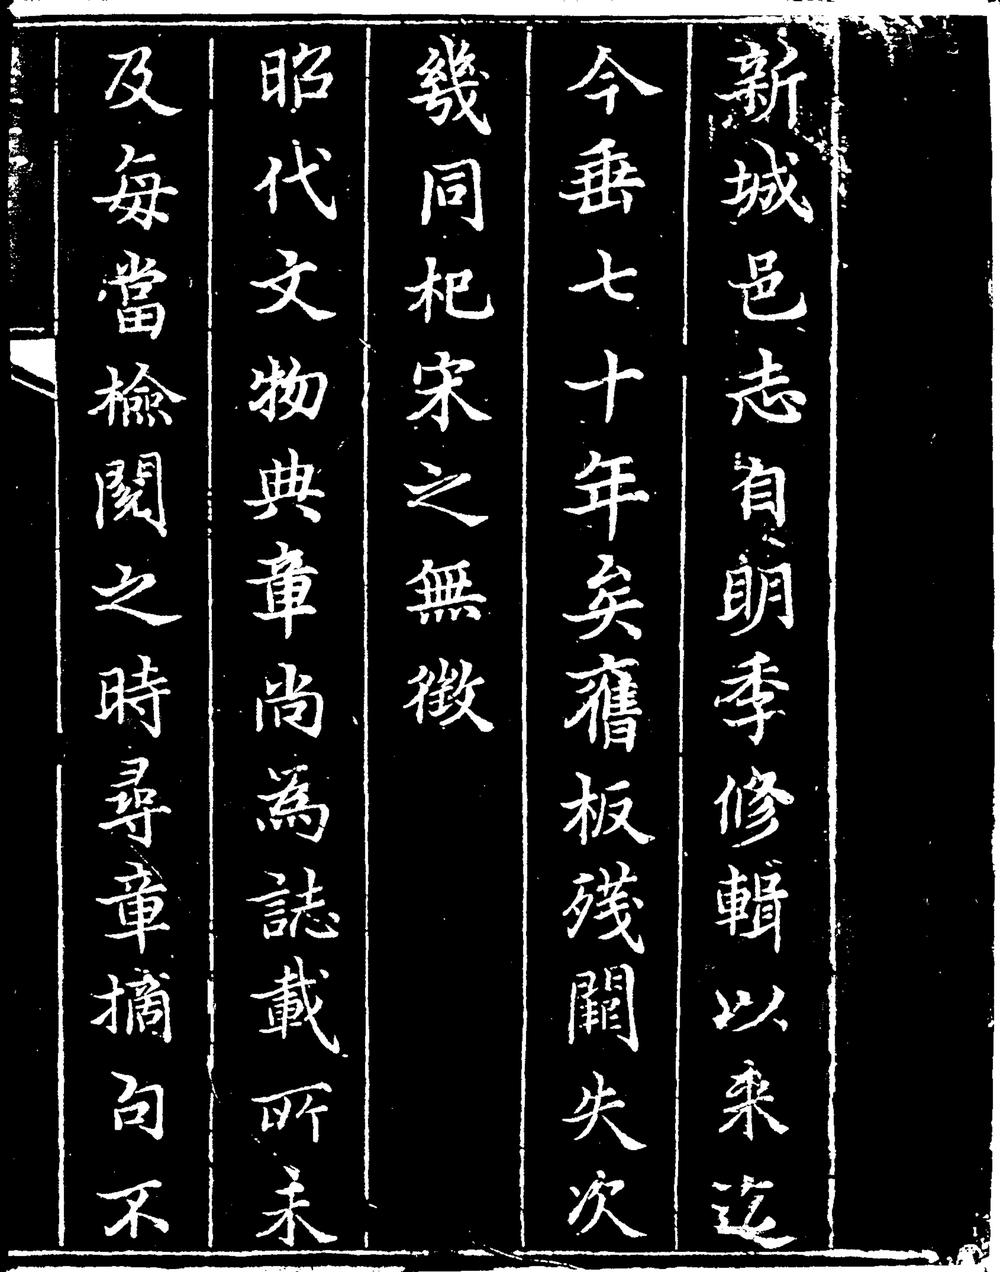 新城邑志自明季修輯以來迄
今垂七十年矣舊板殘闕失次
幾同杞宋之無徵
昭代文物典章尚為誌載所未
及每當檢閱之時尋章摘句不